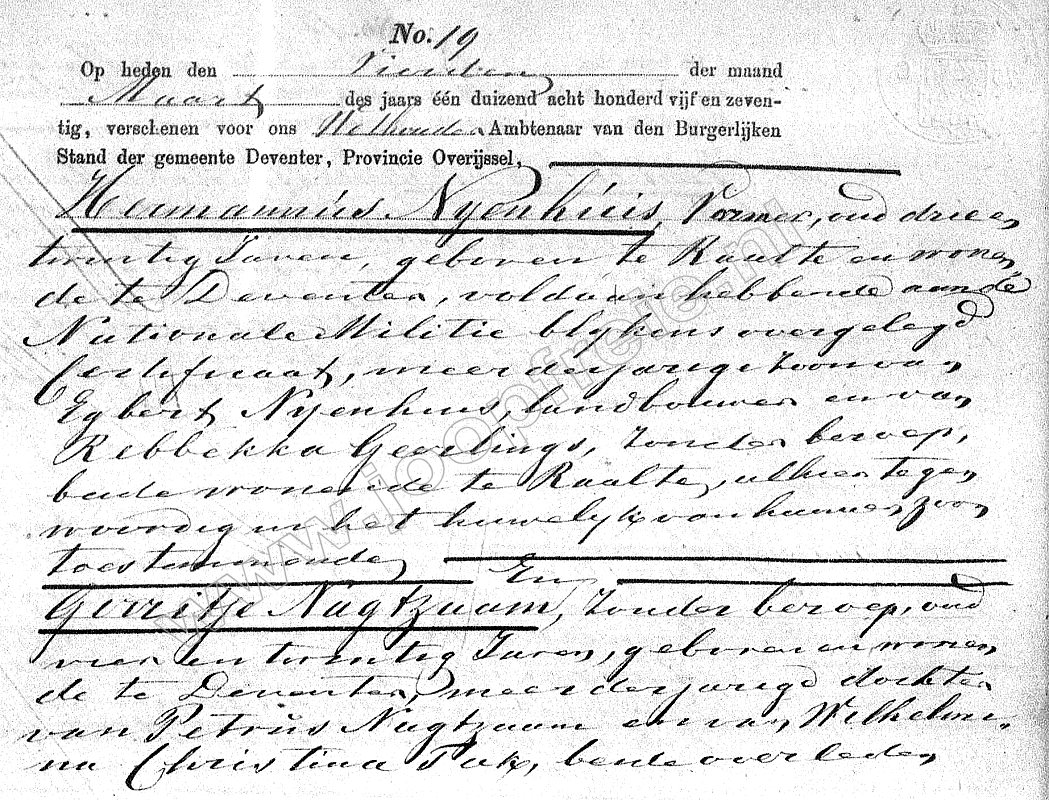 No. 19
Op heden den Vierden der maand
Maart des jaars één duizend acht honderd vijf en zeven-
tig, verschenen voor ons Wethouder Ambtenaar van den Burgerlijken
Stand der gemeente Deventer, Provincie Overijssel,
Hermannus Nyenhuis, Vormer, oud drie en
twintig Jaren, geboren te Raalte en wonen,
de te Deventer, voldaan hebbende aan de
Nationale Militie blykens overgelegd
Certificaat, meerderjarige Zoon van
Egbert Nyenhuis, landbouwer en van
Rebbekka Geerlings, Zonder beroep,
beide wonende te Raalte, alhier tegen
woordig in het huwelyk van hunnen zoon
toestemmende,
En
Gerritje Nagtzaam, Zonder beroep, oud
vier en twintig Jaren, geboren en wonen
de te Deventer, meerderjarige dochter
van Petrus Nagtzaam en van Wilhelmi-
na Christina Tak, beide overleden
www.joopfrede.nl